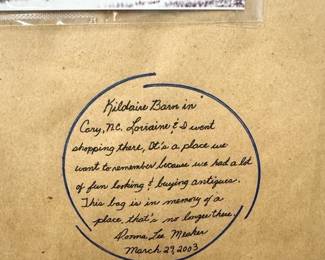 Kildaire Barn in
Cary, N.C. Lorraine & I went
shopping there, It's a place we
want to remember because we had a lot
of fun looking & buying antiques.
This bag is in memory of a
place, that's no longer there.
Donna Lee Meaker
March 29, 2003